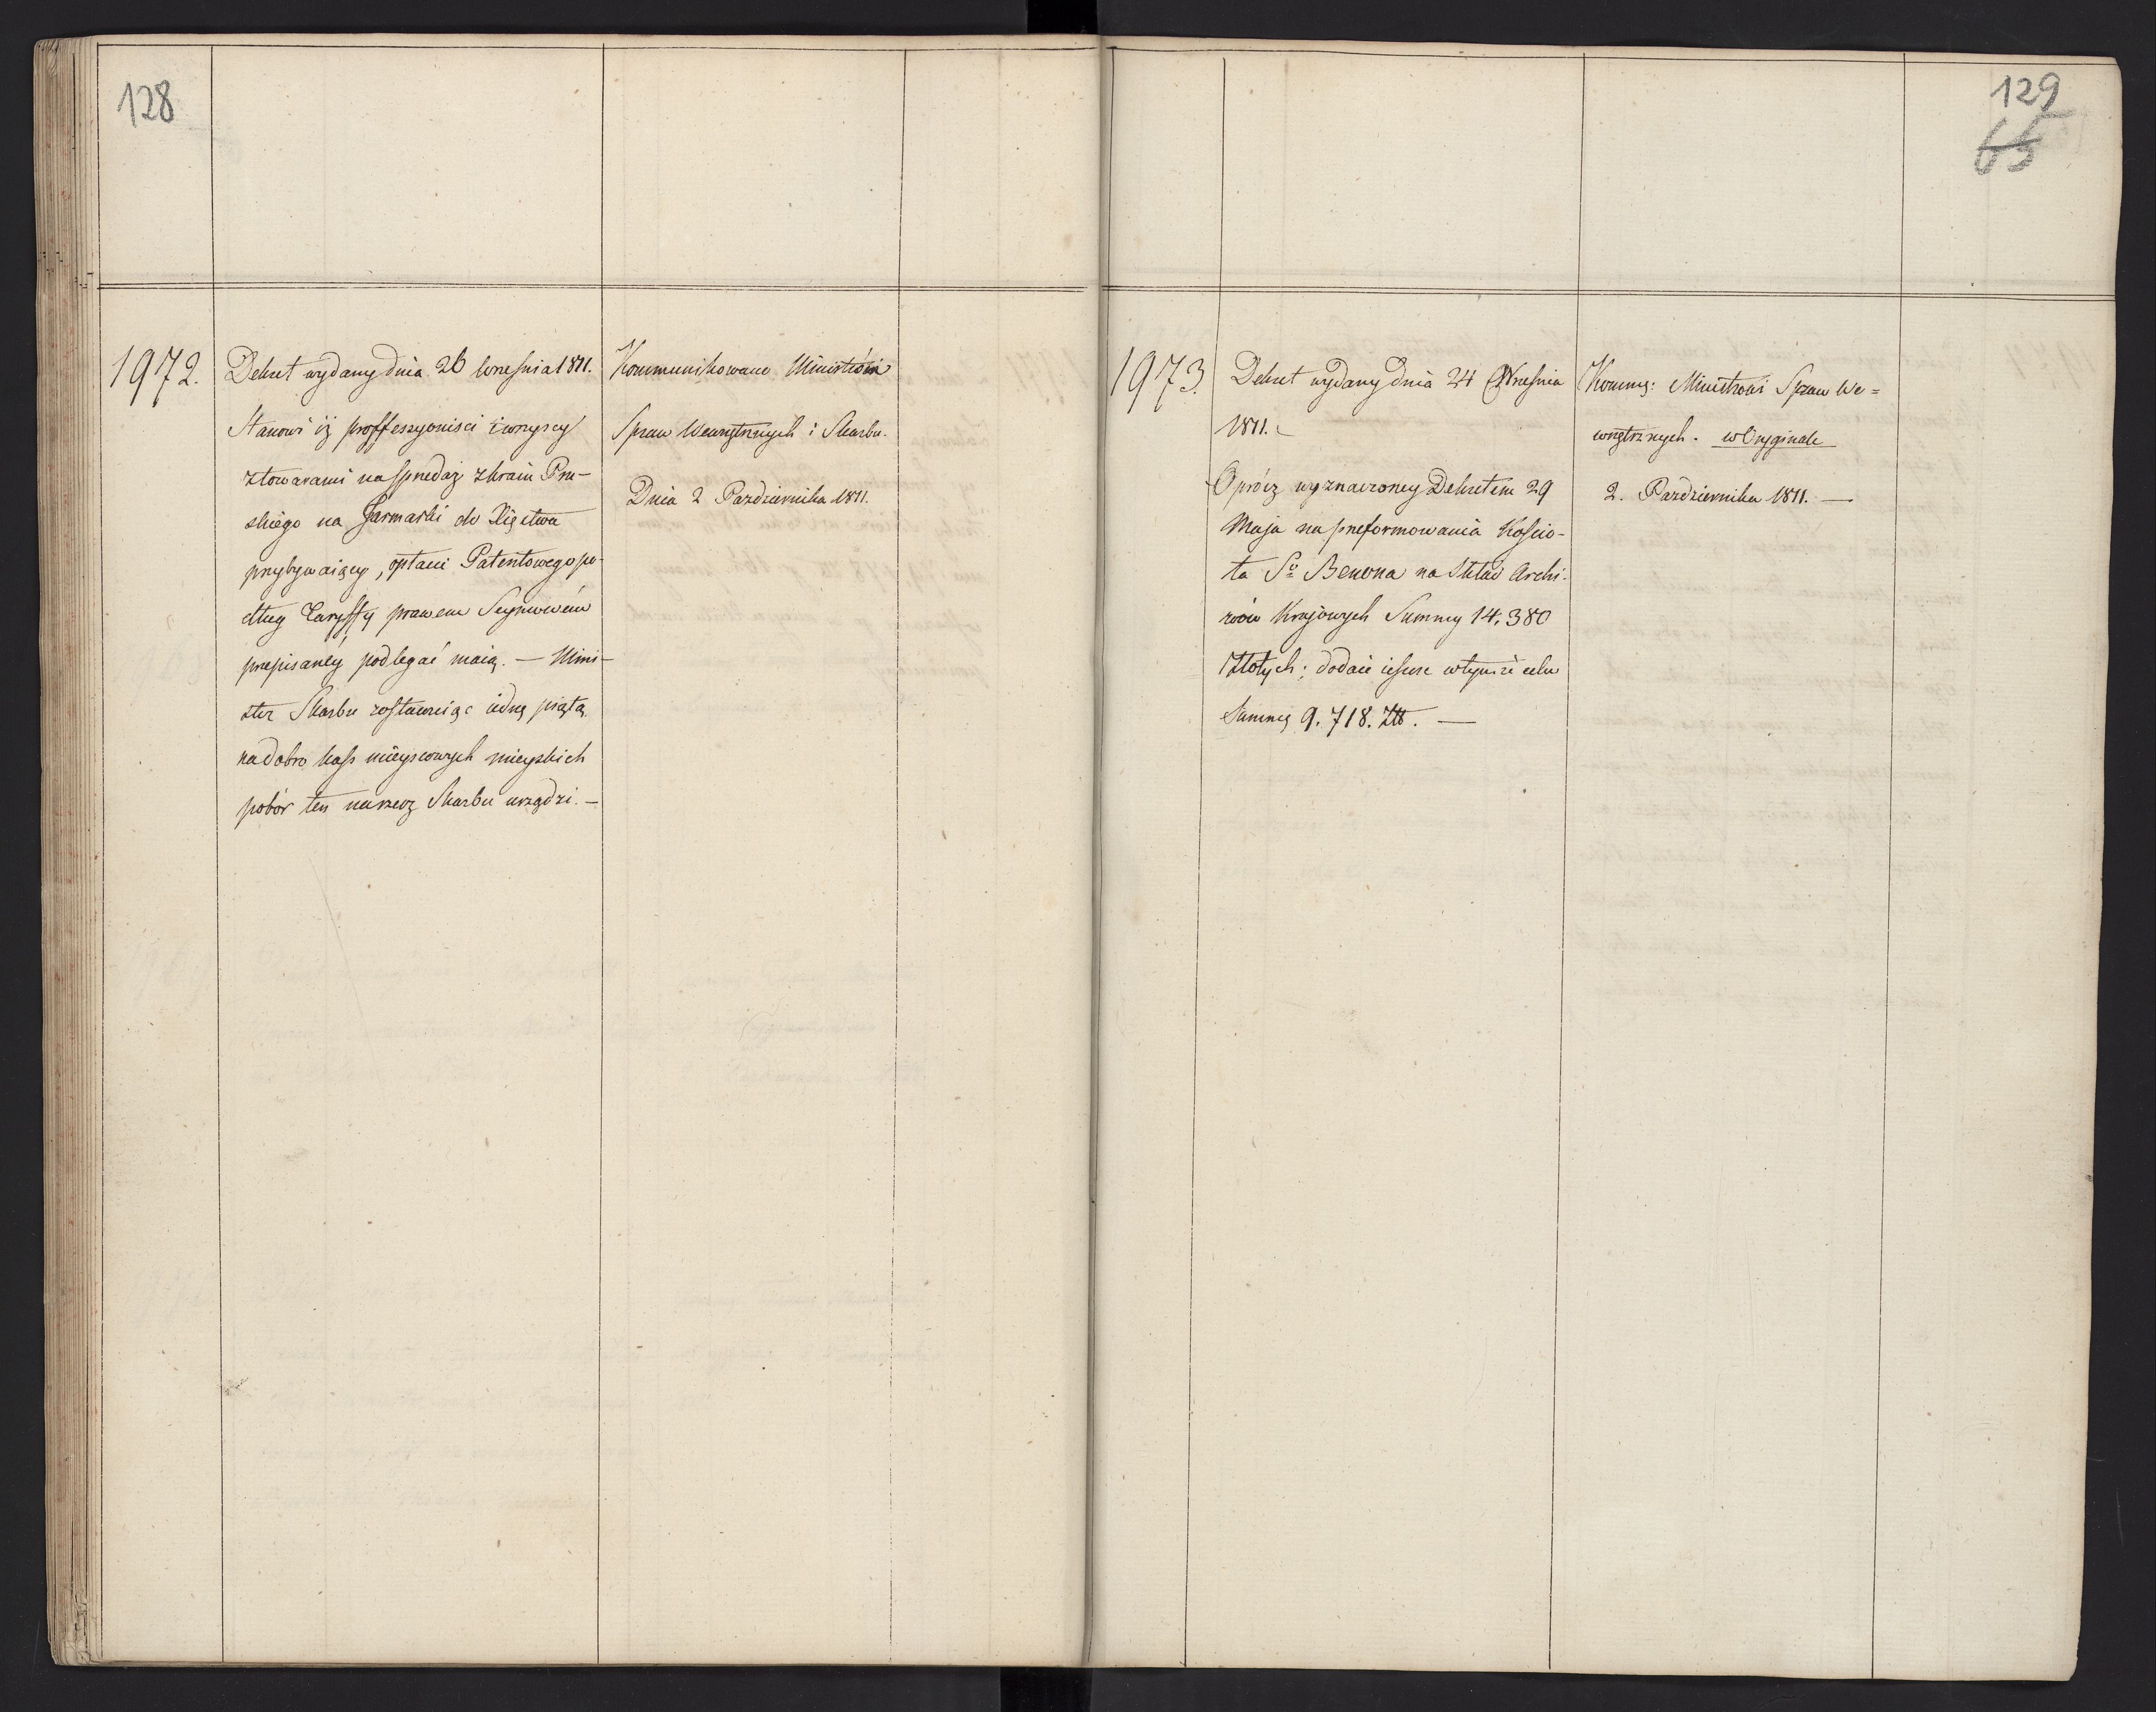 128
1972.
Dekret wydany dnia 26 Września 1811.
Stanowi iż proffessyonisci i wszyscy
z towarami na sprzedaż z kraiu Pru-
skiego na Jarmarki do Xięstwa
przybywaiący, opłacie Patentowego po-
dług Taryffy prawem Seymowém
przepisanéy podlegać maią. — Mini-
ster Skarbu zostawuiąc iedną piątą
na dobro kass mieyscowych mieyskich
pobór ten na rzecz Skarbu urządzi. —
Kommunikowane Ministróm
Spraw Wewnętrznych i Skarbu.
Dnia 2 Pazdziernika 1811.
129
65
1973.
Dekret wydany dnia 24 Września
1811. —
Oprócz wyznaczoney Dekretem 29
Maja na przeformowania Kościo-
ła So Benona na Skład Archi-
wów Krajowych Summy 14,380
Złotych; dodaie ieszcze w tymże celu
Summę 9.718. Zł. —
Kommu: Ministrowi Spraw We=
wnętrznych. w Oryginale
2. Pazdziernika 1811. —